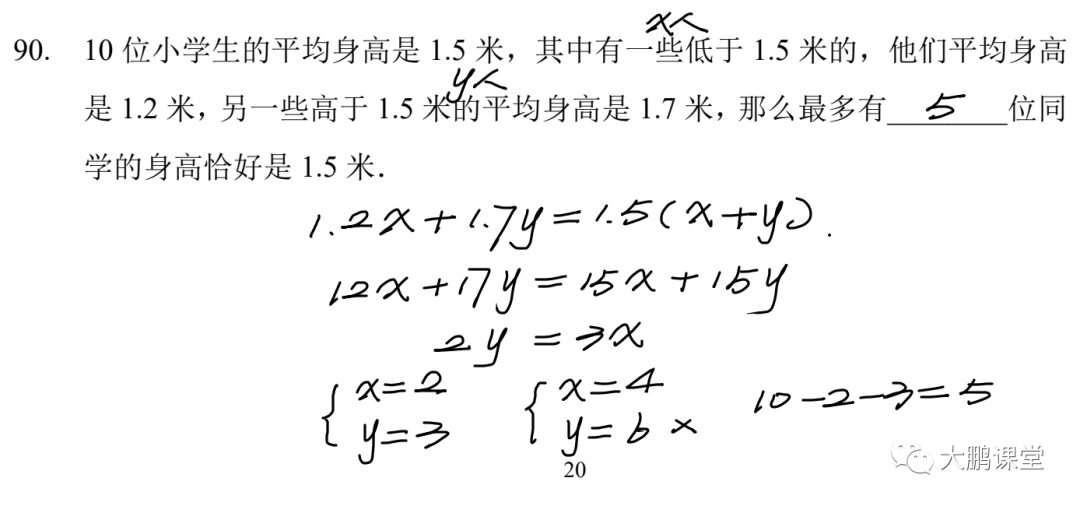 x人
90. 10 位小学生的平均身高是 1.5 米，其中有一些低于 1.5 米的，他们平均身高
y人
是 1.2 米，另一些高于 1.5 米的平均身高是 1.7 米，那么最多有 5 位同
学的身高恰好是 1.5 米．
1.2x+1.7y=1.5(x+y).
12x+17y=15x+15y
2y=3x
{x=2 {x=4 10-2-3=5
y=3 y=6 ×
大鹏课堂
20